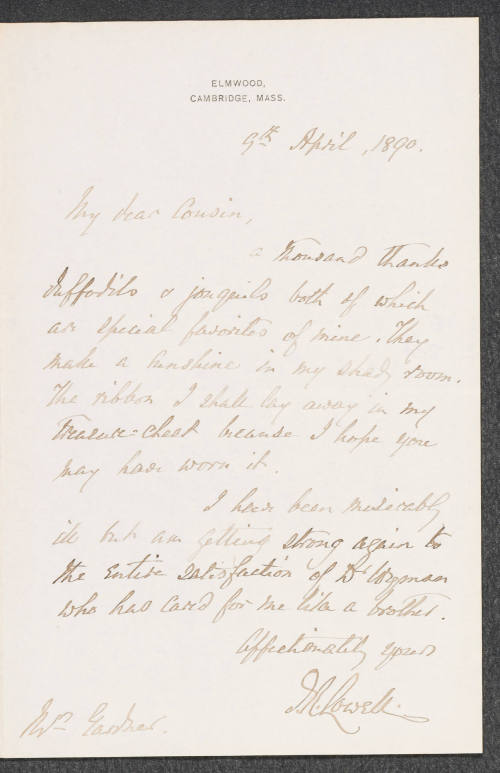 ELMWOOD,
CAMBRIDGE, MASS.
9th April, 1890.
My dear Cousin,
a thousand thanks
daffodils & jonquils both of which
are special favorites of mine. They
make a sunshine in my shady room.
The ribbon I shall lay away in my
Treasure-chest because I hope you
may have worn it.
I have been miserably
ill but am getting strong again to
the entire satisfaction of Dr Wyman
who has cared for me like a brother.
Affectionately yours
J.R. Lowell.
Mrs Gardner.